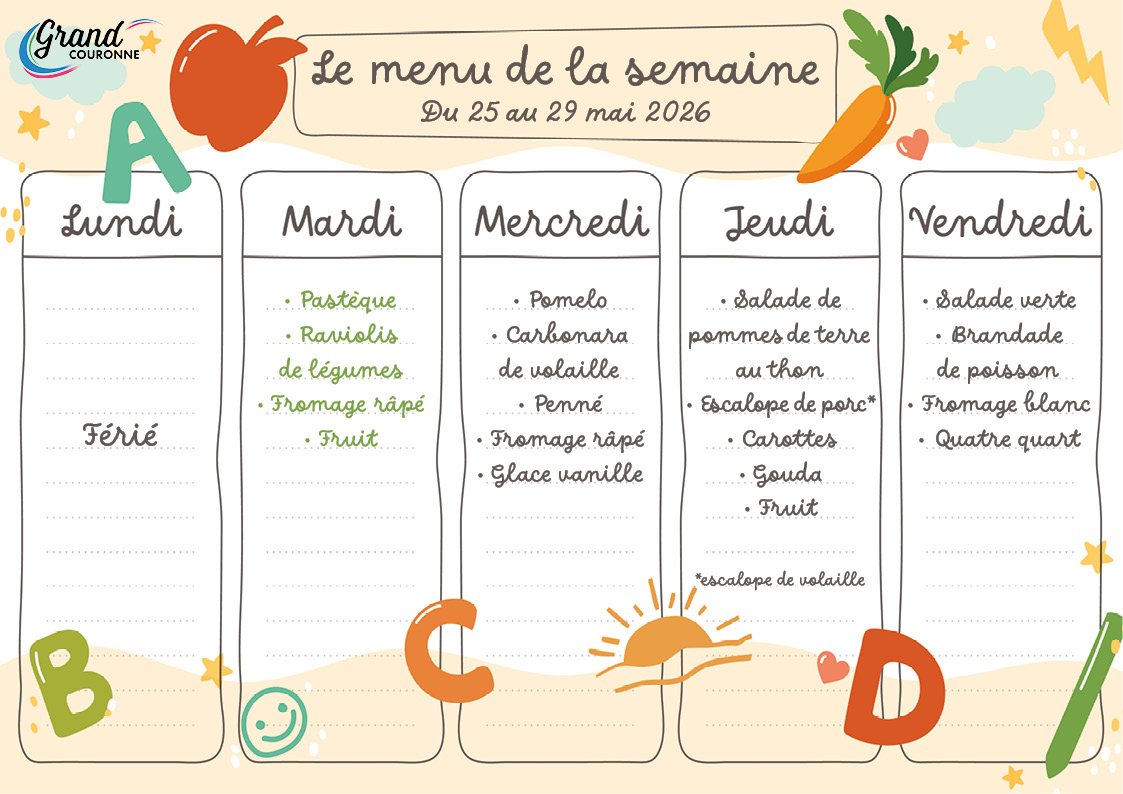 Grand
COURONNE
Le menu de la semaine
Du 25 au 29 mai 2026
A
Lundi
Férié
Mardi
• Pastèque
• Raviolis
de légumes
• Fromage râpé
• Fruit
Mercredi
• Pomelo
• Carbonara
de volaille
• Penné
• Fromage râpé
• Glace vanille
Jeudi
• Salade de
pommes de terre
au thon
• Escalope de porc*
• Carottes
• Gouda
• Fruit
*escalope de volaille
Vendredi
• Salade verte
• Brandade
de poisson
• Fromage blanc
• Quatre quart
B
C
D